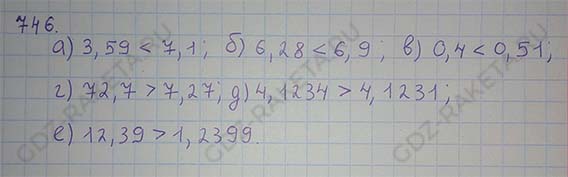 746.
а) 3,59 < 7,1; б) 6,28 < 6,9; в) 0,4 < 0,51;
г) 72,7 > 7,27; д) 4,1234 > 4,1231;
е) 12,39 > 1,2399.
GDZ-RAKETA.RU